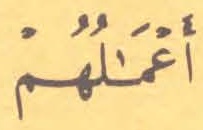 أَعْمَـٰلُهُمْ